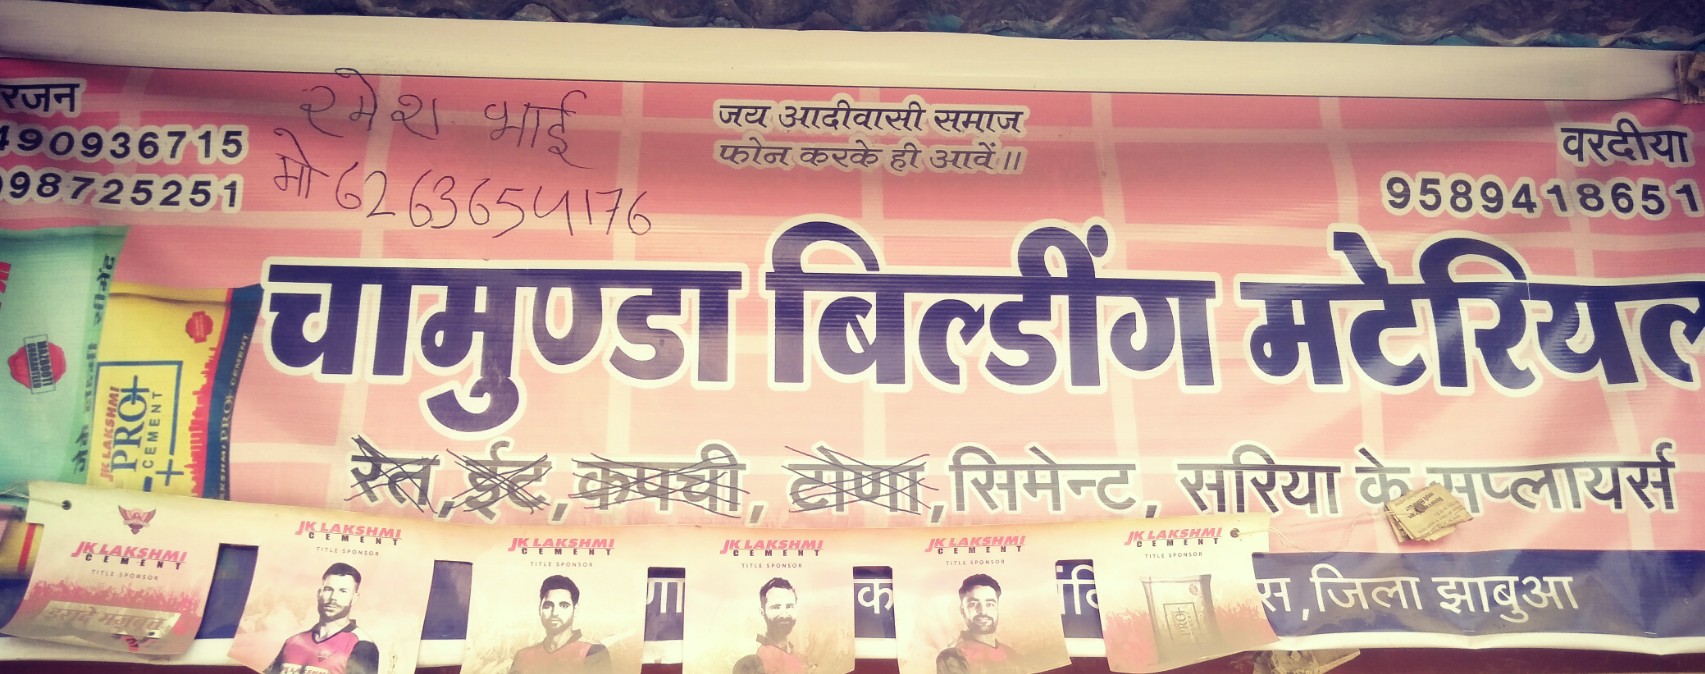 रजन
490936715
98725251
रमेश भाई
मो 6263654176
जय आदीवासी समाज
फोन करके ही आवें॥
वरदीया
9589418651
चामुण्डा बिल्डींग मटेरियल
रेत, ईट, कपची, टोणा, सिमेन्ट, सरिया के सप्लायर्स
JK LAKSHMI
PRO+
CEMENT
JK LAKSHMI
CEMENT
TITLE SPONSOR
JK LAKSHMI
CEMENT
TITLE SPONSOR
JK LAKSHMI
CEMENT
TITLE SPONSOR
JK LAKSHMI
CEMENT
TITLE SPONSOR
JK LAKSHMI
CEMENT
TITLE SPONSOR
JK LAKSHMI
CEMENT
TITLE SPONSOR
PRO+
जिला झाबुआ